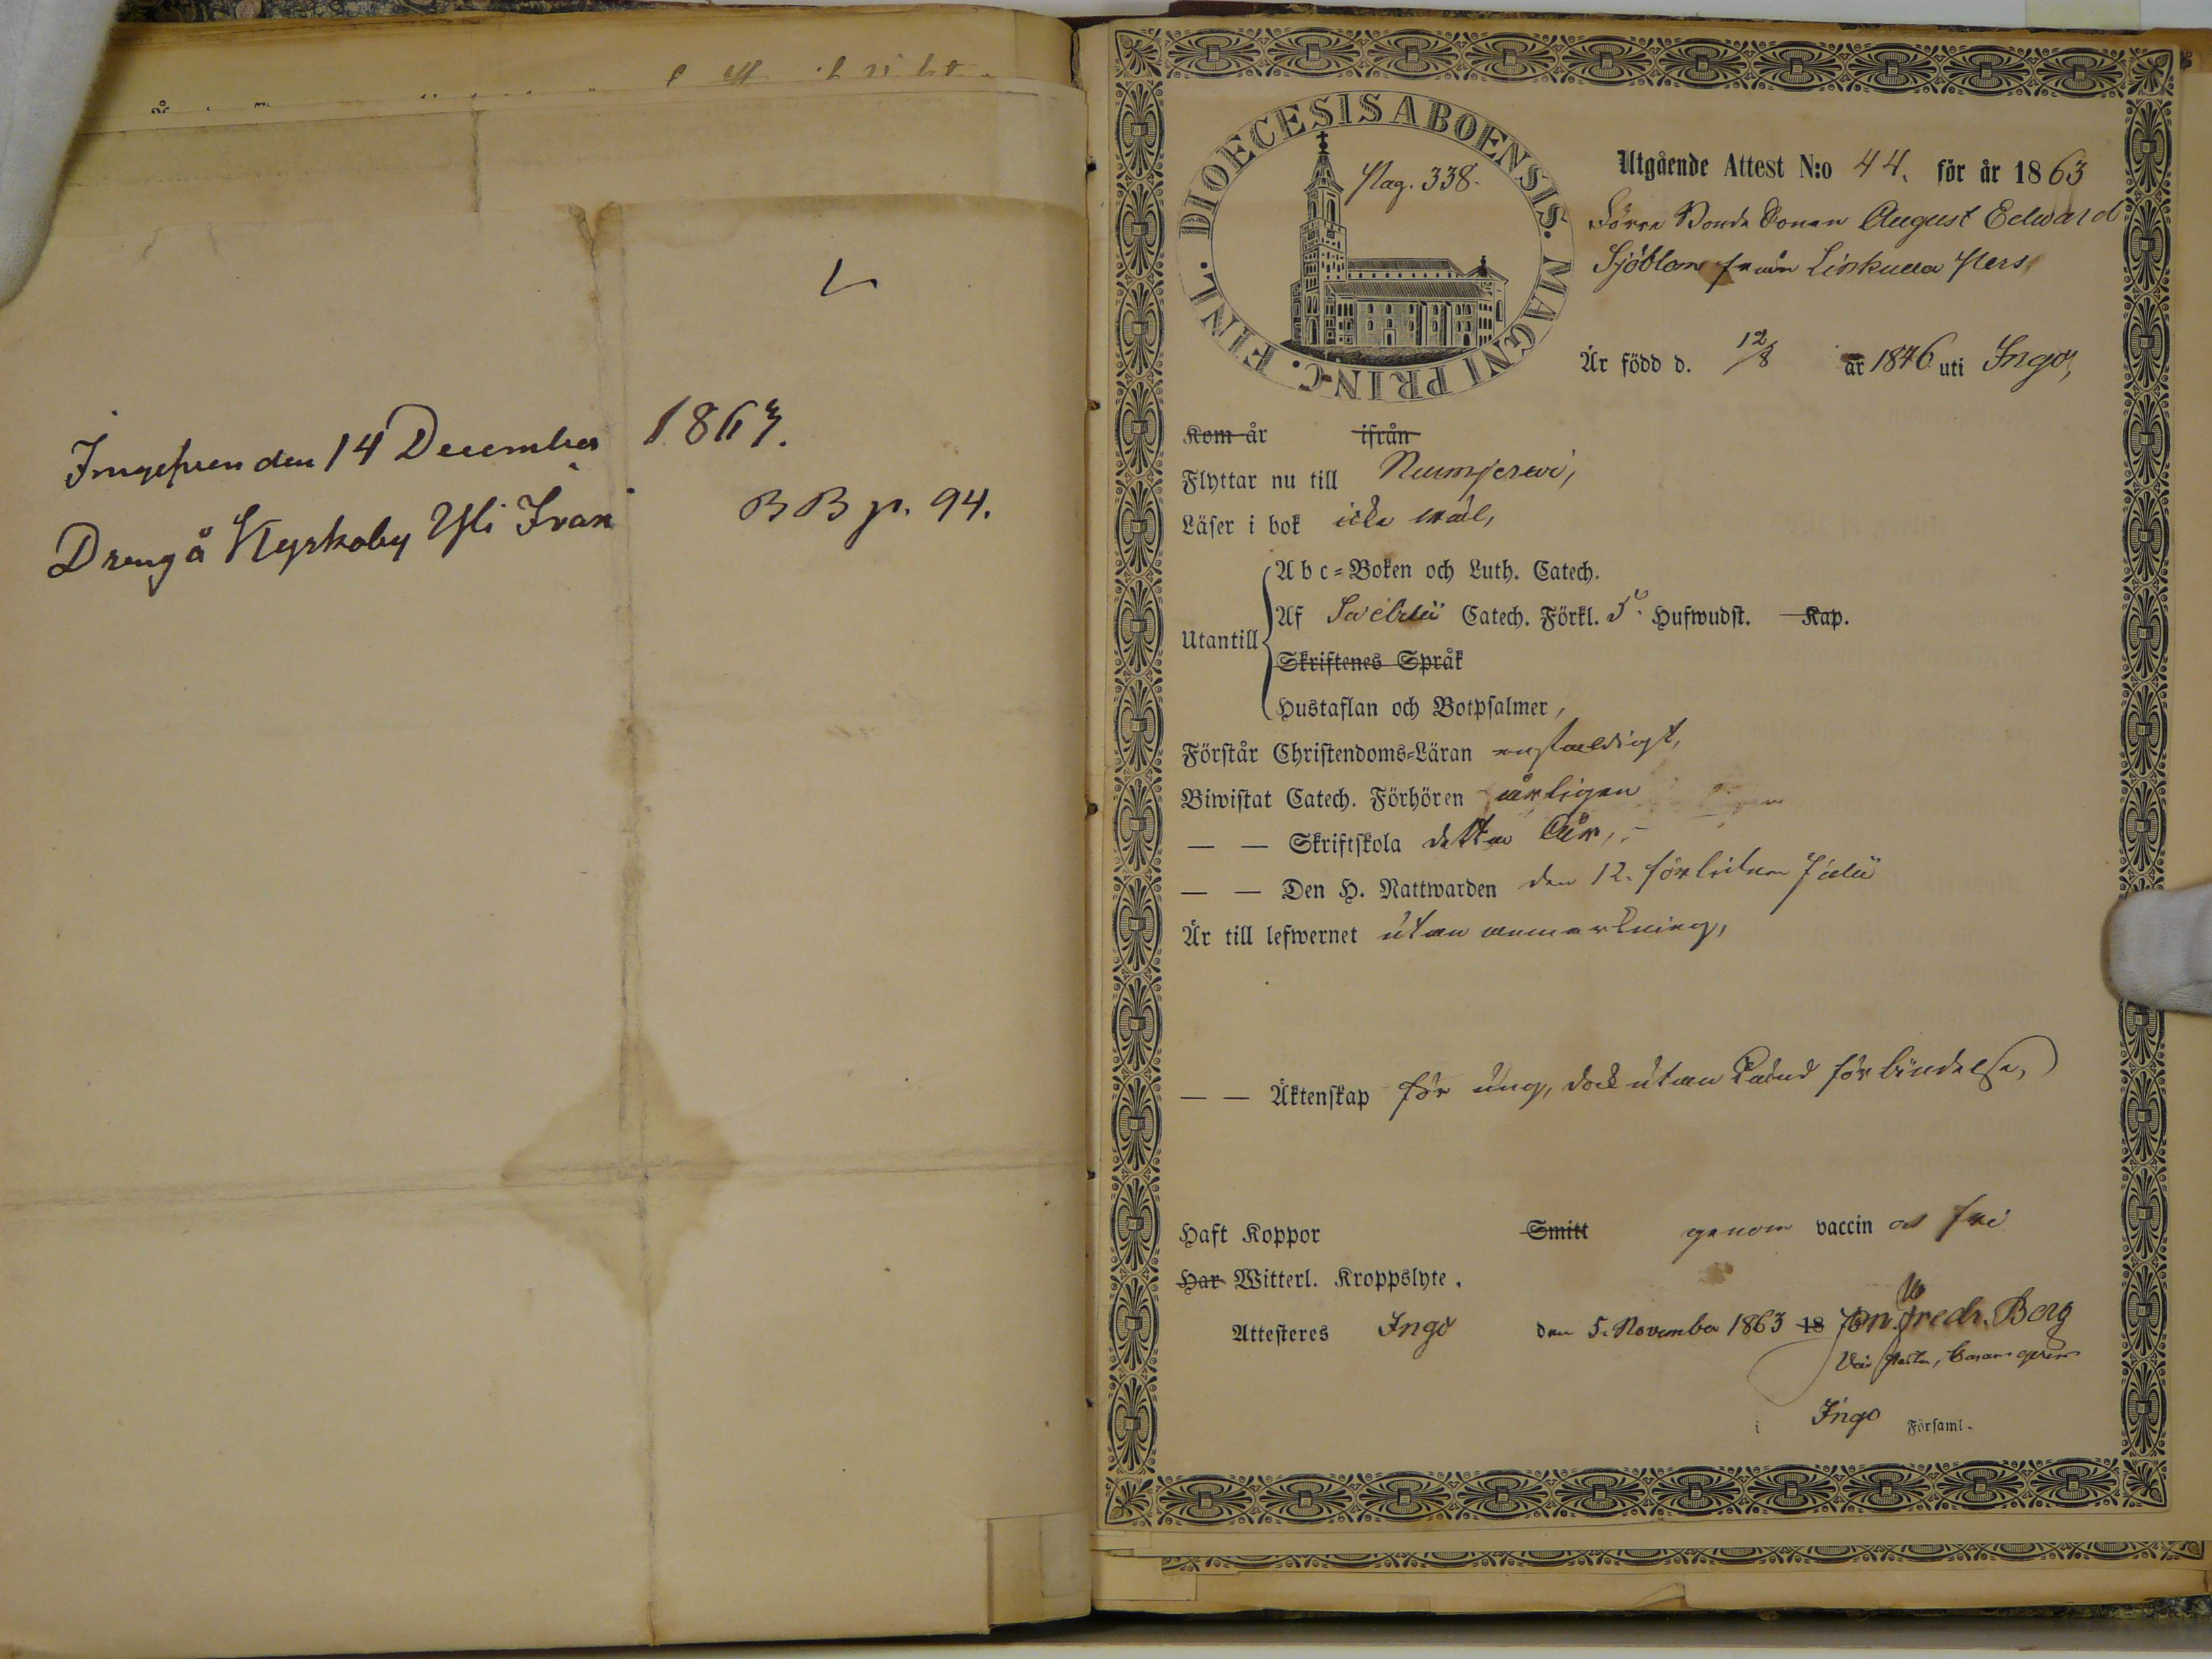 den 14 December 1863.
Dreng å Kyrkoby Yli Ivari BB p. 94.
DIOECESIS ABOENSIS. MAGNI PRINC. FINL.
Pag. 338.
Utgående Attest N:o 44. för år 1863
Förre Bonde Sonen August Edward
Sjöblom från Linkulla Pers
Är född d. 12/8 år 1846 uti Ingo,
Kom år ifrån
Flyttar nu till Nummjerwi,
Läser i bok icke wäl,
Utantill
A b c=Boken och Luth. Catech.
Af Svebilii Catech. Förkl. 5. Hufwudst. Kap.
Skriftenes Språk
Hustaflan och Botpsalmer,
Förstår Christendoms=Läran enfaldigt,
Biwistat Catech. Förhören årligen
— — Skriftskola detta år,
— — Den H. Nattwarden den 12. förliden Julii
Är till lefwernet utan anmärkning,
— — Äktenskap för ung, dock utan känd förbindelse,
Haft Koppor Smitt genom vaccin fri
Har Witterl. Kroppslyte.
Attesteres Ingo den 5. November 1863 18 Fredr. Berg
i Ingo Församl.